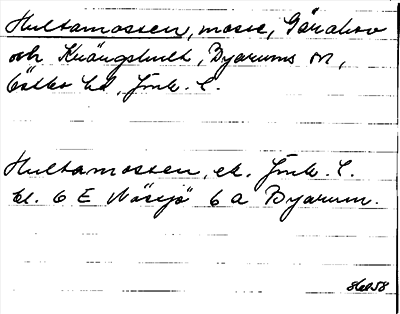 Hultamossen, mosse, Gärahov
och Kvängshult, Byarums sn,
Östbo hd, Jönk. l.
Hultamossen, ek. Jönk. l.
bl. 6 E Nässjö 6 a Byarum.